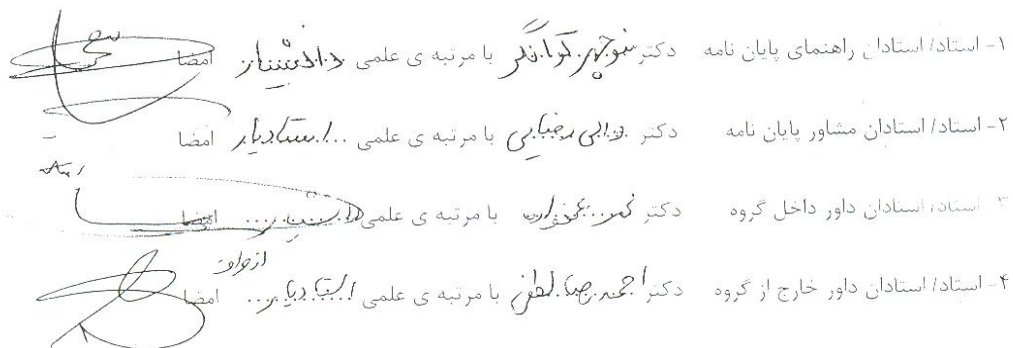 ۱- استاد/ استادان راهنمای پایان نامه دکتر منوچهر توانگر با مرتبه ی علمی دانشیار امضا
۲- استاد/ استادان مشاور پایان نامه دکتر با مرتبه ی علمی استادیار امضا
۳- استاد/ استادان داور داخل گروه دکتر با مرتبه ی علمی دانشیار امضا
از طرف
۴- استاد/ استادان داور خارج از گروه دکتر احمد لطفی با مرتبه ی علمی استادیار امضا